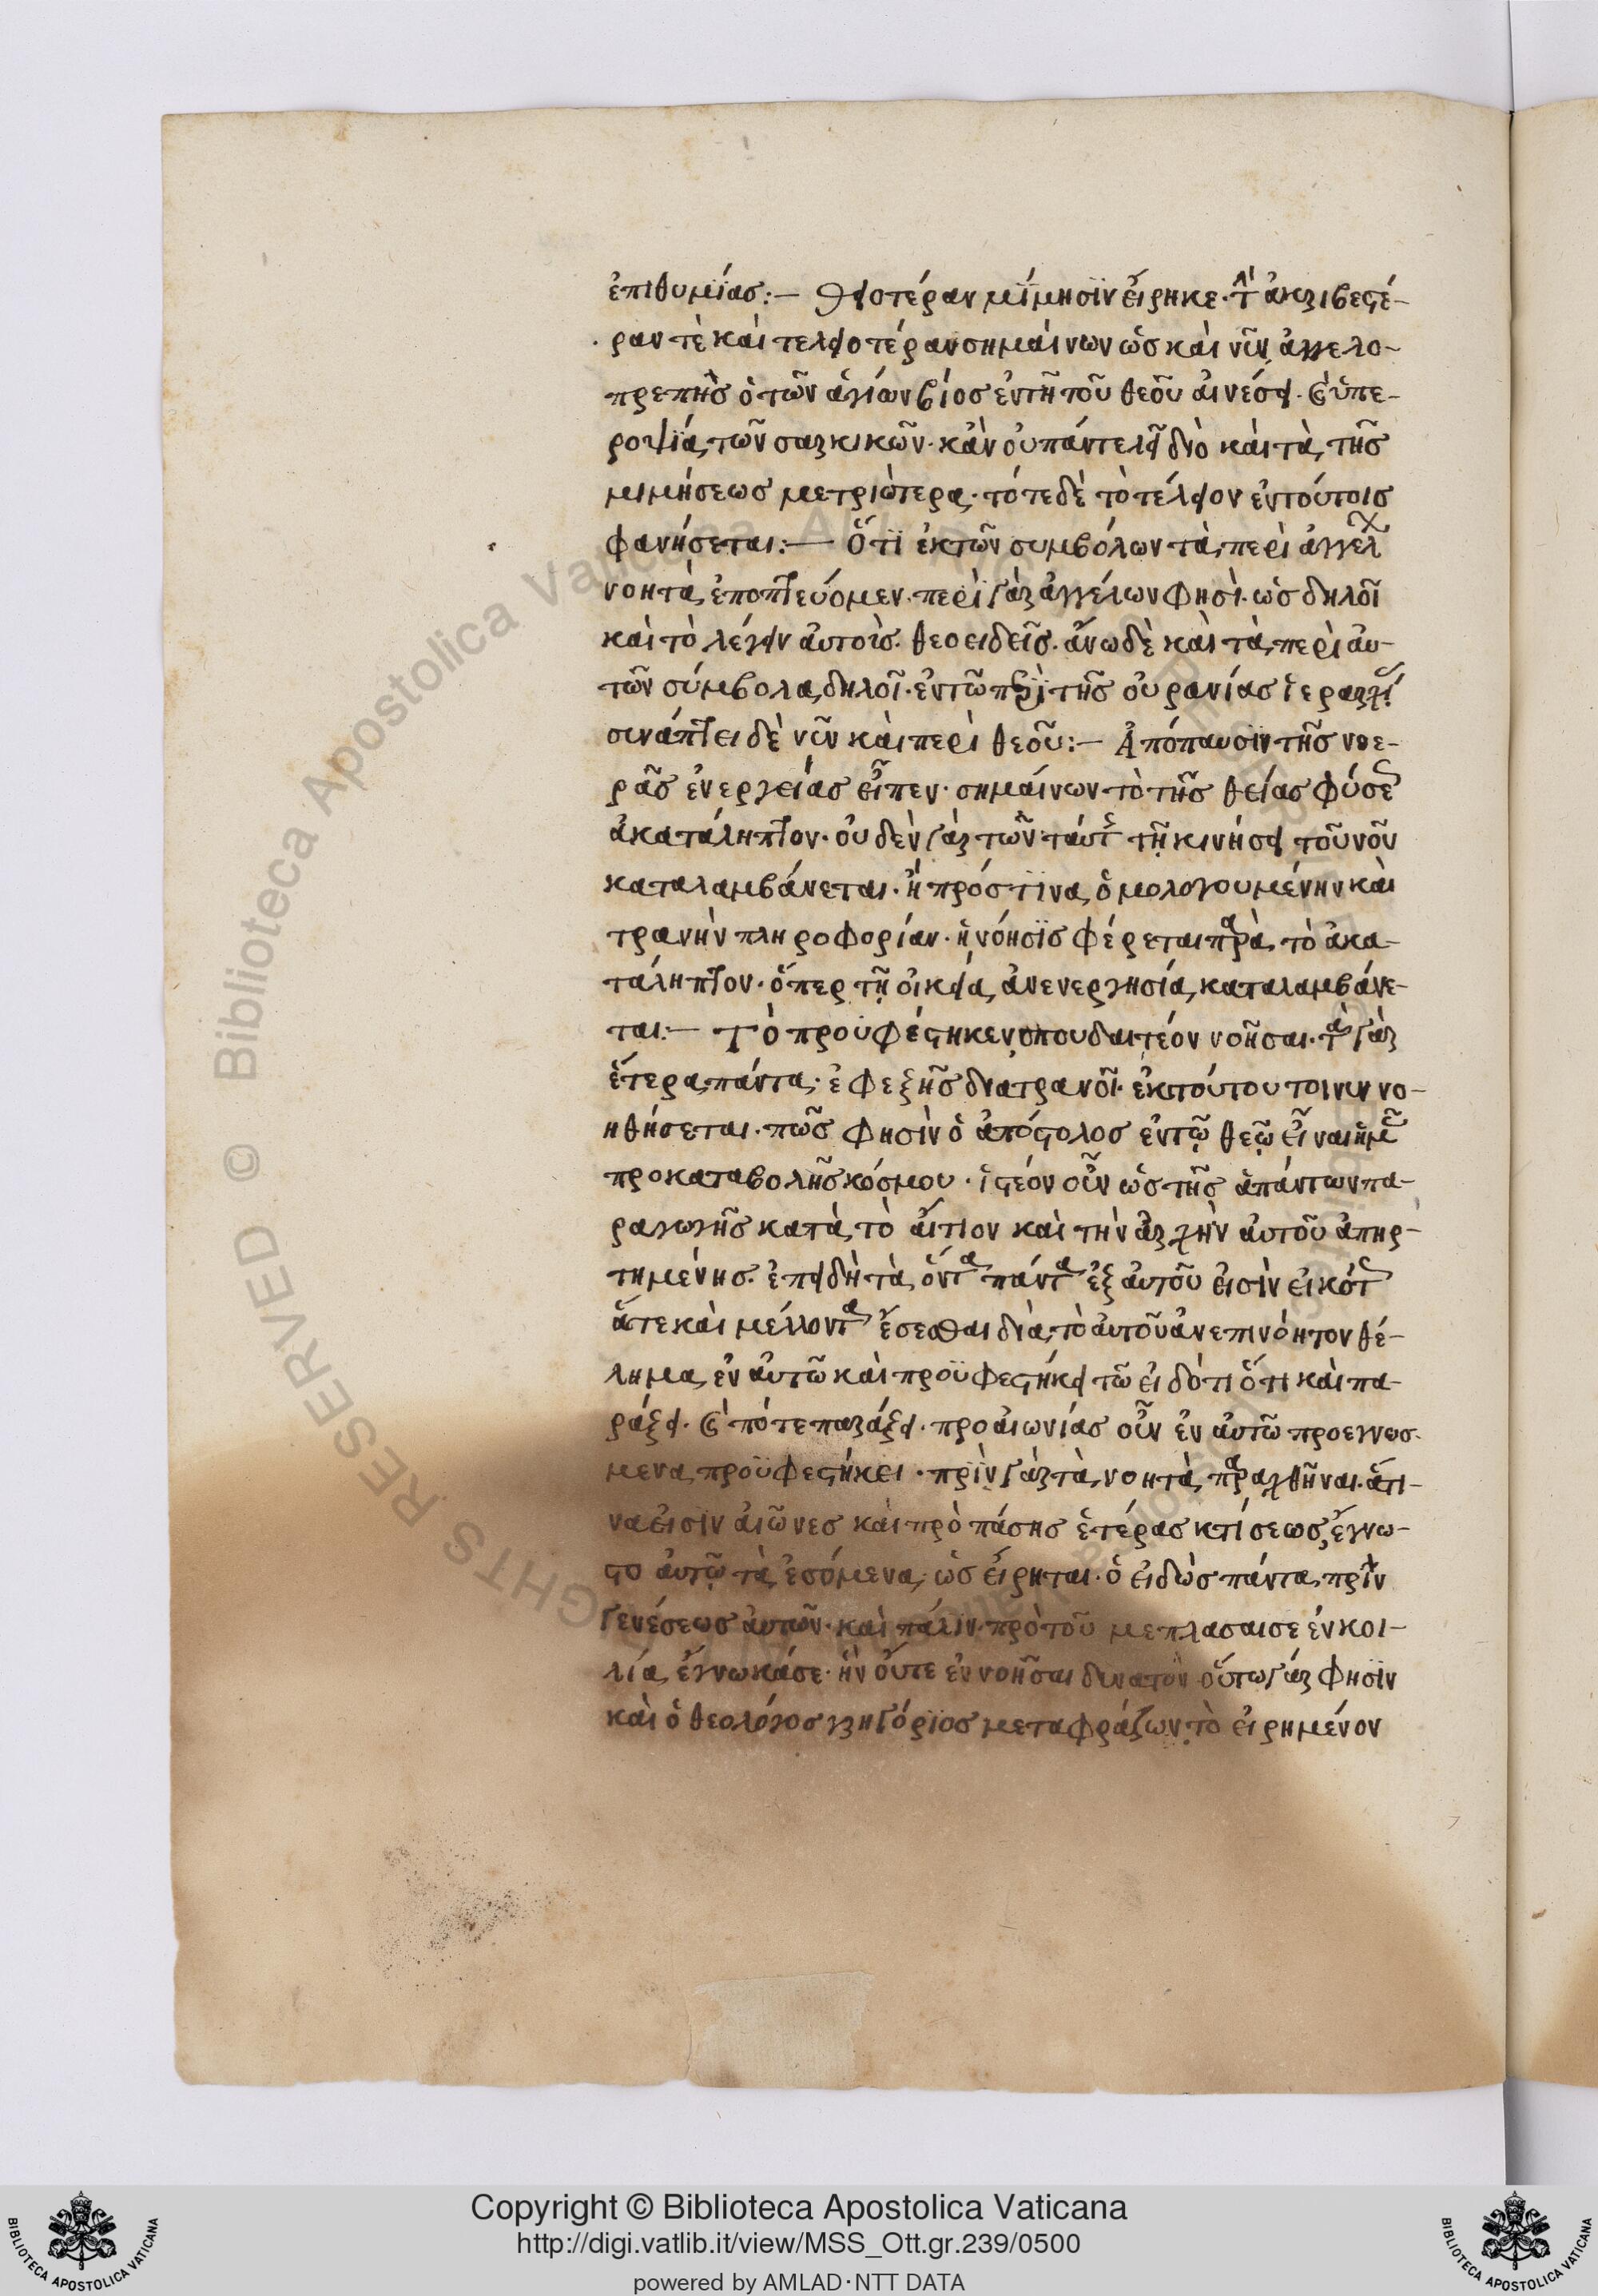 ἐπιθυμίας:— Θειοτέραν μίμησιν εἴρηκε· τὴν ἀκριβεστέ-
ραν τὲ καὶ τελειοτέραν σημαίνων ὡς καὶ νῦν ἀγγελο-
πρεπὴς ὁ τῶν ἁγίων βίος ἐν τῆ τοῦ θεοῦ αἰνέσει· καὶ ὑπε-
ροψία τῶν σαρκικῶν· κἂν οὐ παντελεῖ διὸ καὶ τὰ τῆς
μιμήσεως μετριώτερα· τότε δὲ τὸ τέλειον ἐν τούτοις
φανήσεται:— Ὅτι ἐκ τῶν συμβόλων τὰ περὶ ἀγγέλων
νοητὰ ἐποπτεύομεν· περὶ γὰρ ἀγγέλων φησὶ· ὡς δηλοῖ
καὶ τὸ λέγειν αὐτοὶς· θεοειδεῖς· ἄνω δὲ καὶ τὰ περὶ αὐ-
τῶν σύμβολα δηλοῖ· ἐν τῶ περὶ τῆς οὐρανίας ἱεραρχίας
συνάπτει δὲ νῦν καὶ περὶ θεοῦ:— Ἀπόπαυσιν τῆς νοε-
ρᾶς ἐνεργείας εἶπεν· σημαίνων τὸ τῆς θείας φύσεως
ἀκατάληπτον· οὐδὲν γὰρ τῶν ταύτης τῇ κινήσει τοῦ νοῦ
καταλαμβάνεται· ἢ πρός τινα ὁμολογουμένην καὶ
τρανὴν πληροφορίαν· ἡ νόησις φέρεται παρὰ τὸ ἀκα-
τάληπτον· ὅπερ τῇ οἰκεία ἀνενεργησία καταλαμβάνε-
ται:— Τὸ προϋφέστηκεν σπουδαιτέον νοῆσαι· τὰ γὰρ
ἕτερα πάντα· ἐφεξῆς διατρανοῖ· ἐκ τούτου τοινυν νο-
ηθήσεται· πῶς φησὶν ὁ ἀπόστολος ἐν τῷ θεῷ εἶναι ἡμᾶς
προκαταβολῆς κόσμου· ἰστέον οὖν ὡς τῆς ἁπάντων πα-
ραγωγῆς κατὰ τὸ αἴτιον καὶ τὴν ἀρχὴν αὐτοῦ ἀπηρ-
τημένης· ἐπειδὴ τὰ ὄντα πάντα ἐξ αὐτοῦ εἰσὶν εἰκότως
ἅτε καὶ μέλλοντα ἔσεσθαι διὰ τὸ αὐτοῦ ἀνεπινόητον θέ-
λημα ἐν αὐτῶ καὶ προϋφεστήκει τῶ εἰδότι ὅτι καὶ πα-
ράξει· καὶ πότε παράξει· προαιωνίας οὖν ἐν αὐτῶ προεγνωσ-
μενα προϋφεστήκει· πρὶν γὰρ τὰ νοητὰ παραχθῆναι· ἅτι-
να εἰσὶν αἰῶνες καὶ πρὸ πάσης ἑτέρας κτίσεως, ἔγνω-
στο αὐτῷ τὰ ἐσόμενα ὡς εἴρηται· ὁ εἰδὼς πάντα πρὶν
γενέσεως αὐτῶν· καὶ πάλιν· πρὸ τοῦ με πλασαι σε ἐν κοι-
λία ἔγνωκά σε· ἣν οὔτε ἐννοῆσαι δυνατὸν οὕτω γάρ φησὶν
καὶ ὁ θεολόγος γρηγόριος μεταφράζων τὸ εἰρημένον
Copyright © Biblioteca Apostolica Vaticana
http://digi.vatlib.it/view/MSS_Ott.gr.239/0500
powered by AMLAD·NTT DATA